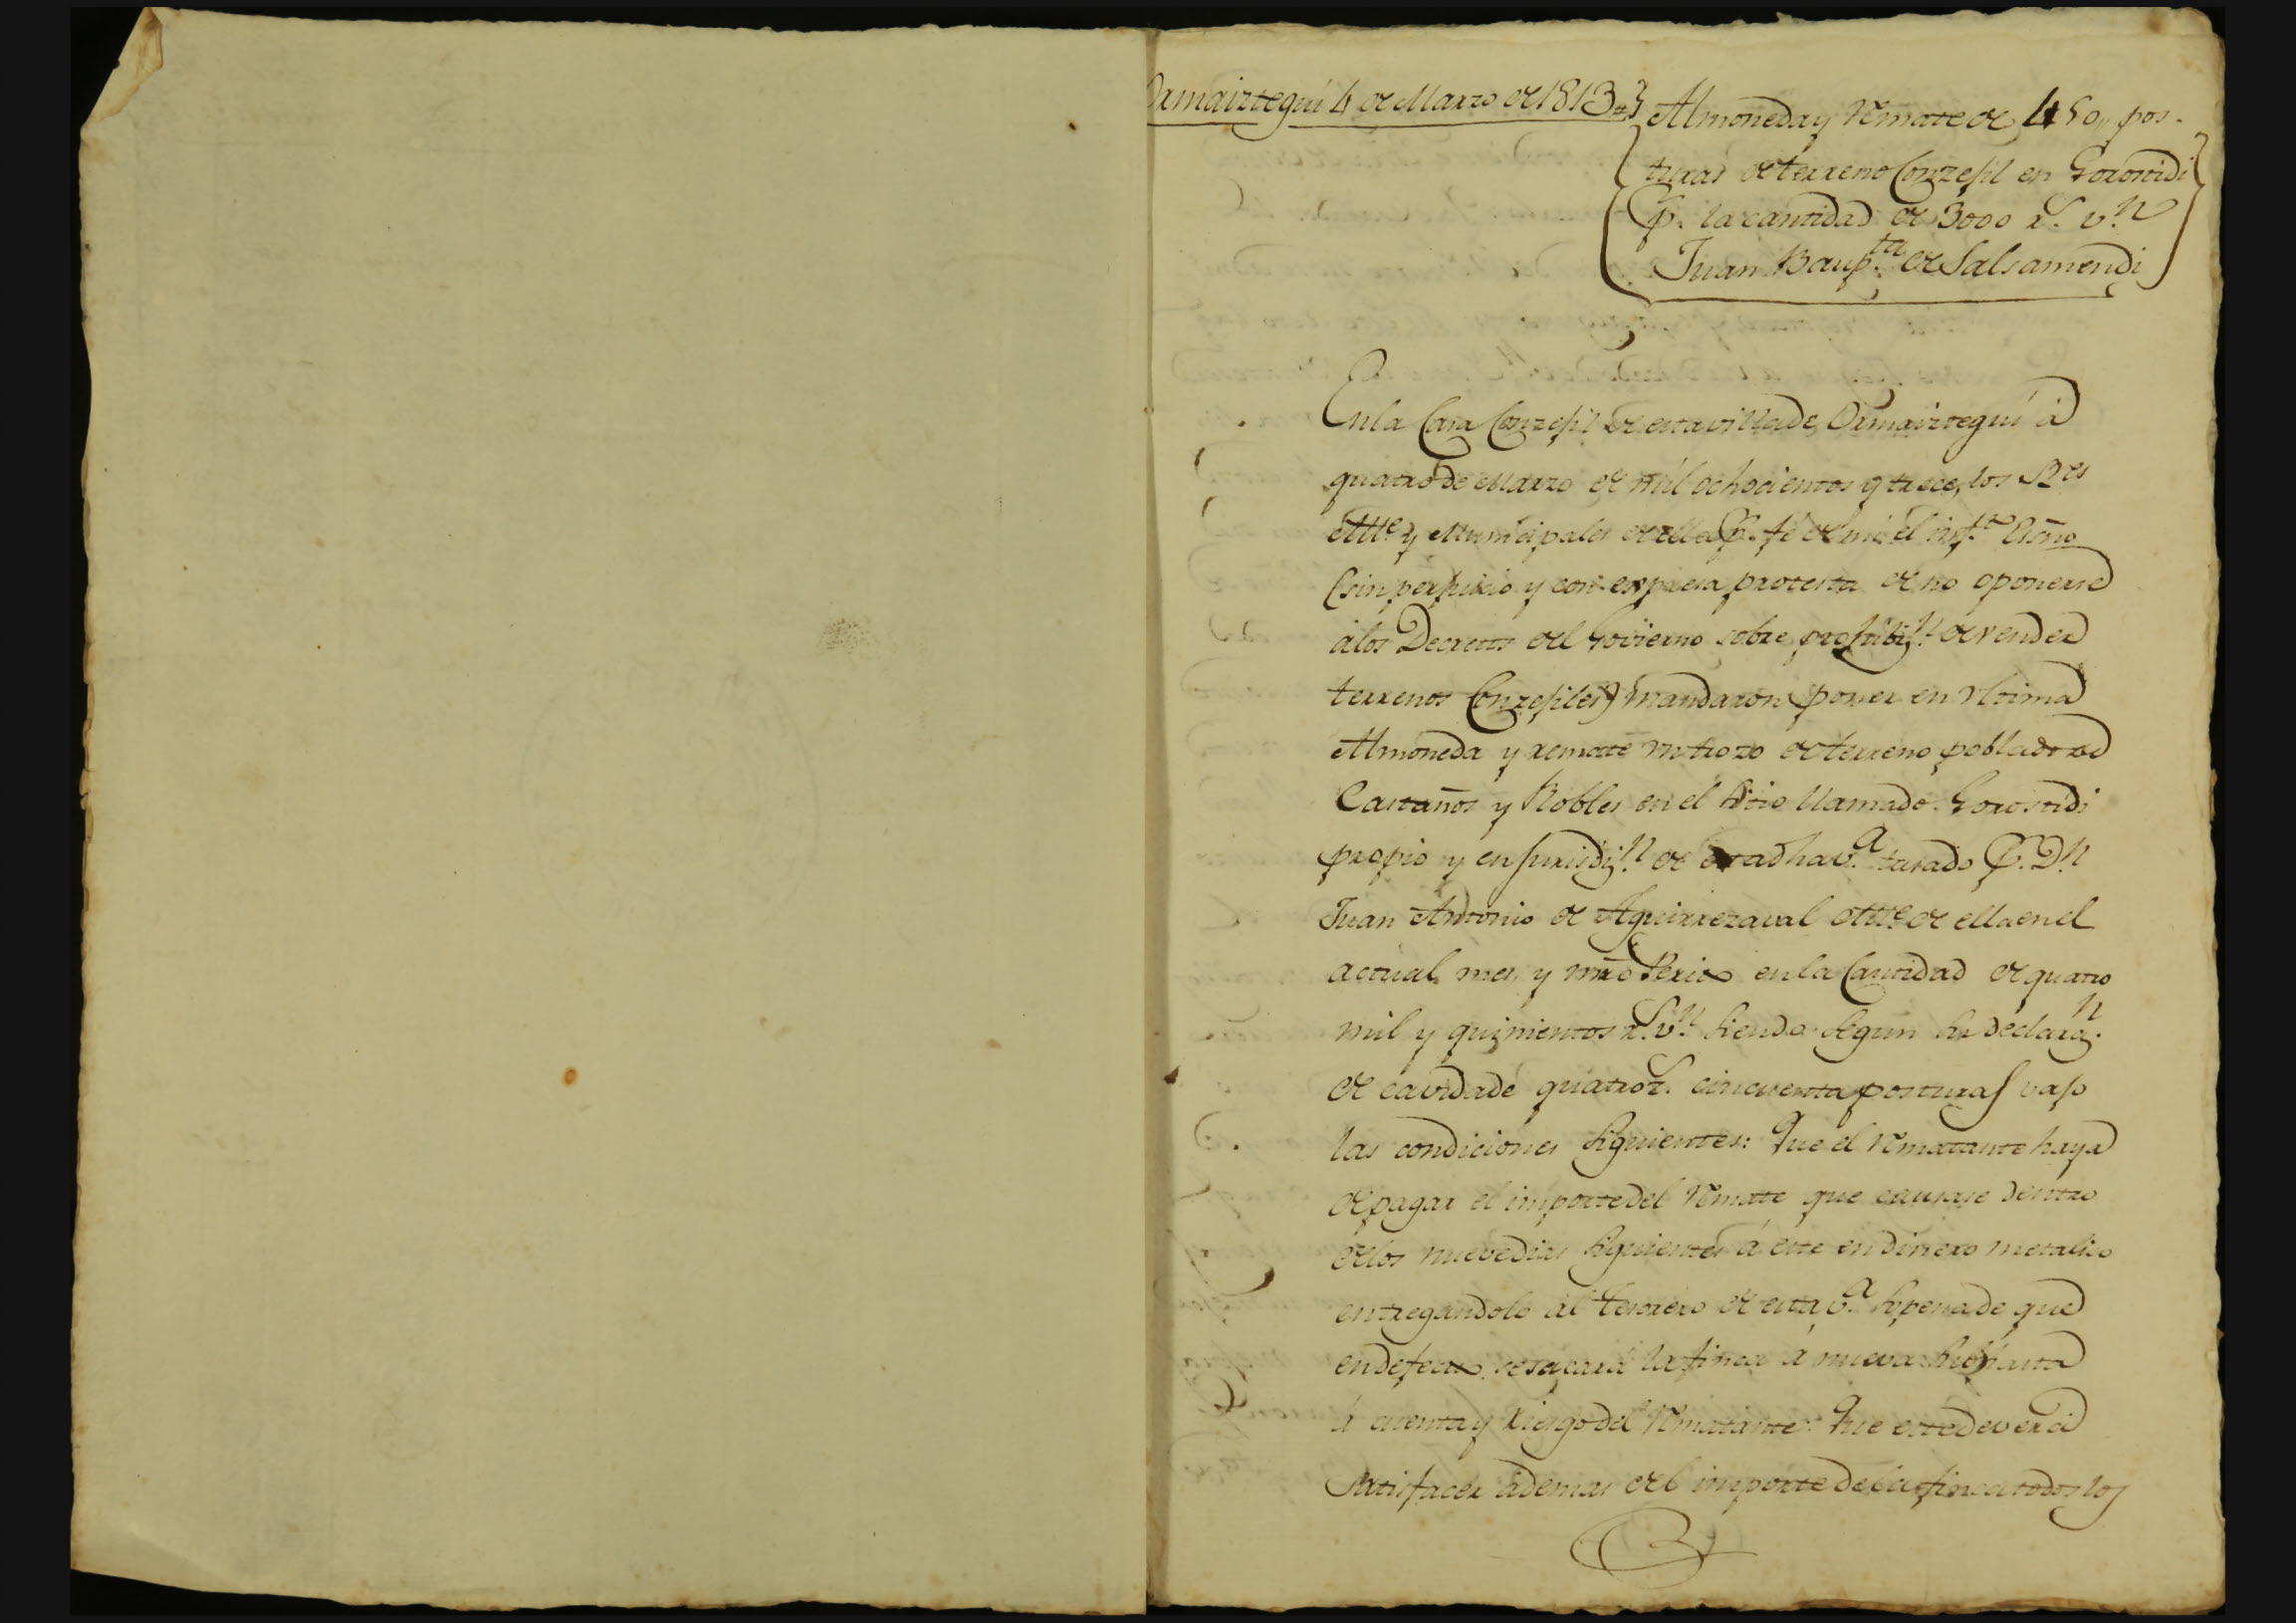 Ormaiztegui 4 de Marzo de 1813
Almoneda y Remate de 450,, pos-
turas de terreno Conzejil en Gorostidi
p.r la cantidad de 3000 r.s v.n
Juan Baup.ta de Salsamendi
En la Casa Conzejil de esta villa de Ormaiztegui à
quatro de Marzo de mil ochocientos y trece, los S.res
Alc.e y Municipales de ella p.r fé de mi el inf.to Esño
(sin perjuicio y con expresa protesta de no oponerse
à los Decretos del Govierno sobre prohibiz.n de vender
terrenos Conzejiles) mandaron poner en vltima
Almoneda y remate vn trozo de terreno poblado de
Castaños y Robles en el sitio llamado Gorostidi
propio y en Jurisdiz.n de esta dha v.a tasado p.r D.n
Juan Antonio de Aguirrezaval Alc.e de ella en el
actual mes y mro Perito en la Cantidad de quatro
mil y quinientos r.s v.n siendo segun su declaraz.n
de cavidad de quatroz.s cincuenta posturas vajo
las condiciones siguientes: Que el Rematante haya
de pagar el importe del Remate que causare dentro
de los nueve dias siguientes à este en dinero metalico
entregandolo al tesorero de esta v.a so pena de que
en defecto se sacará la finca à nueva subhasta
à cuenta y riesgo del Rematante: Que este deverá
satisfacer ademas del importe de la finca todos los